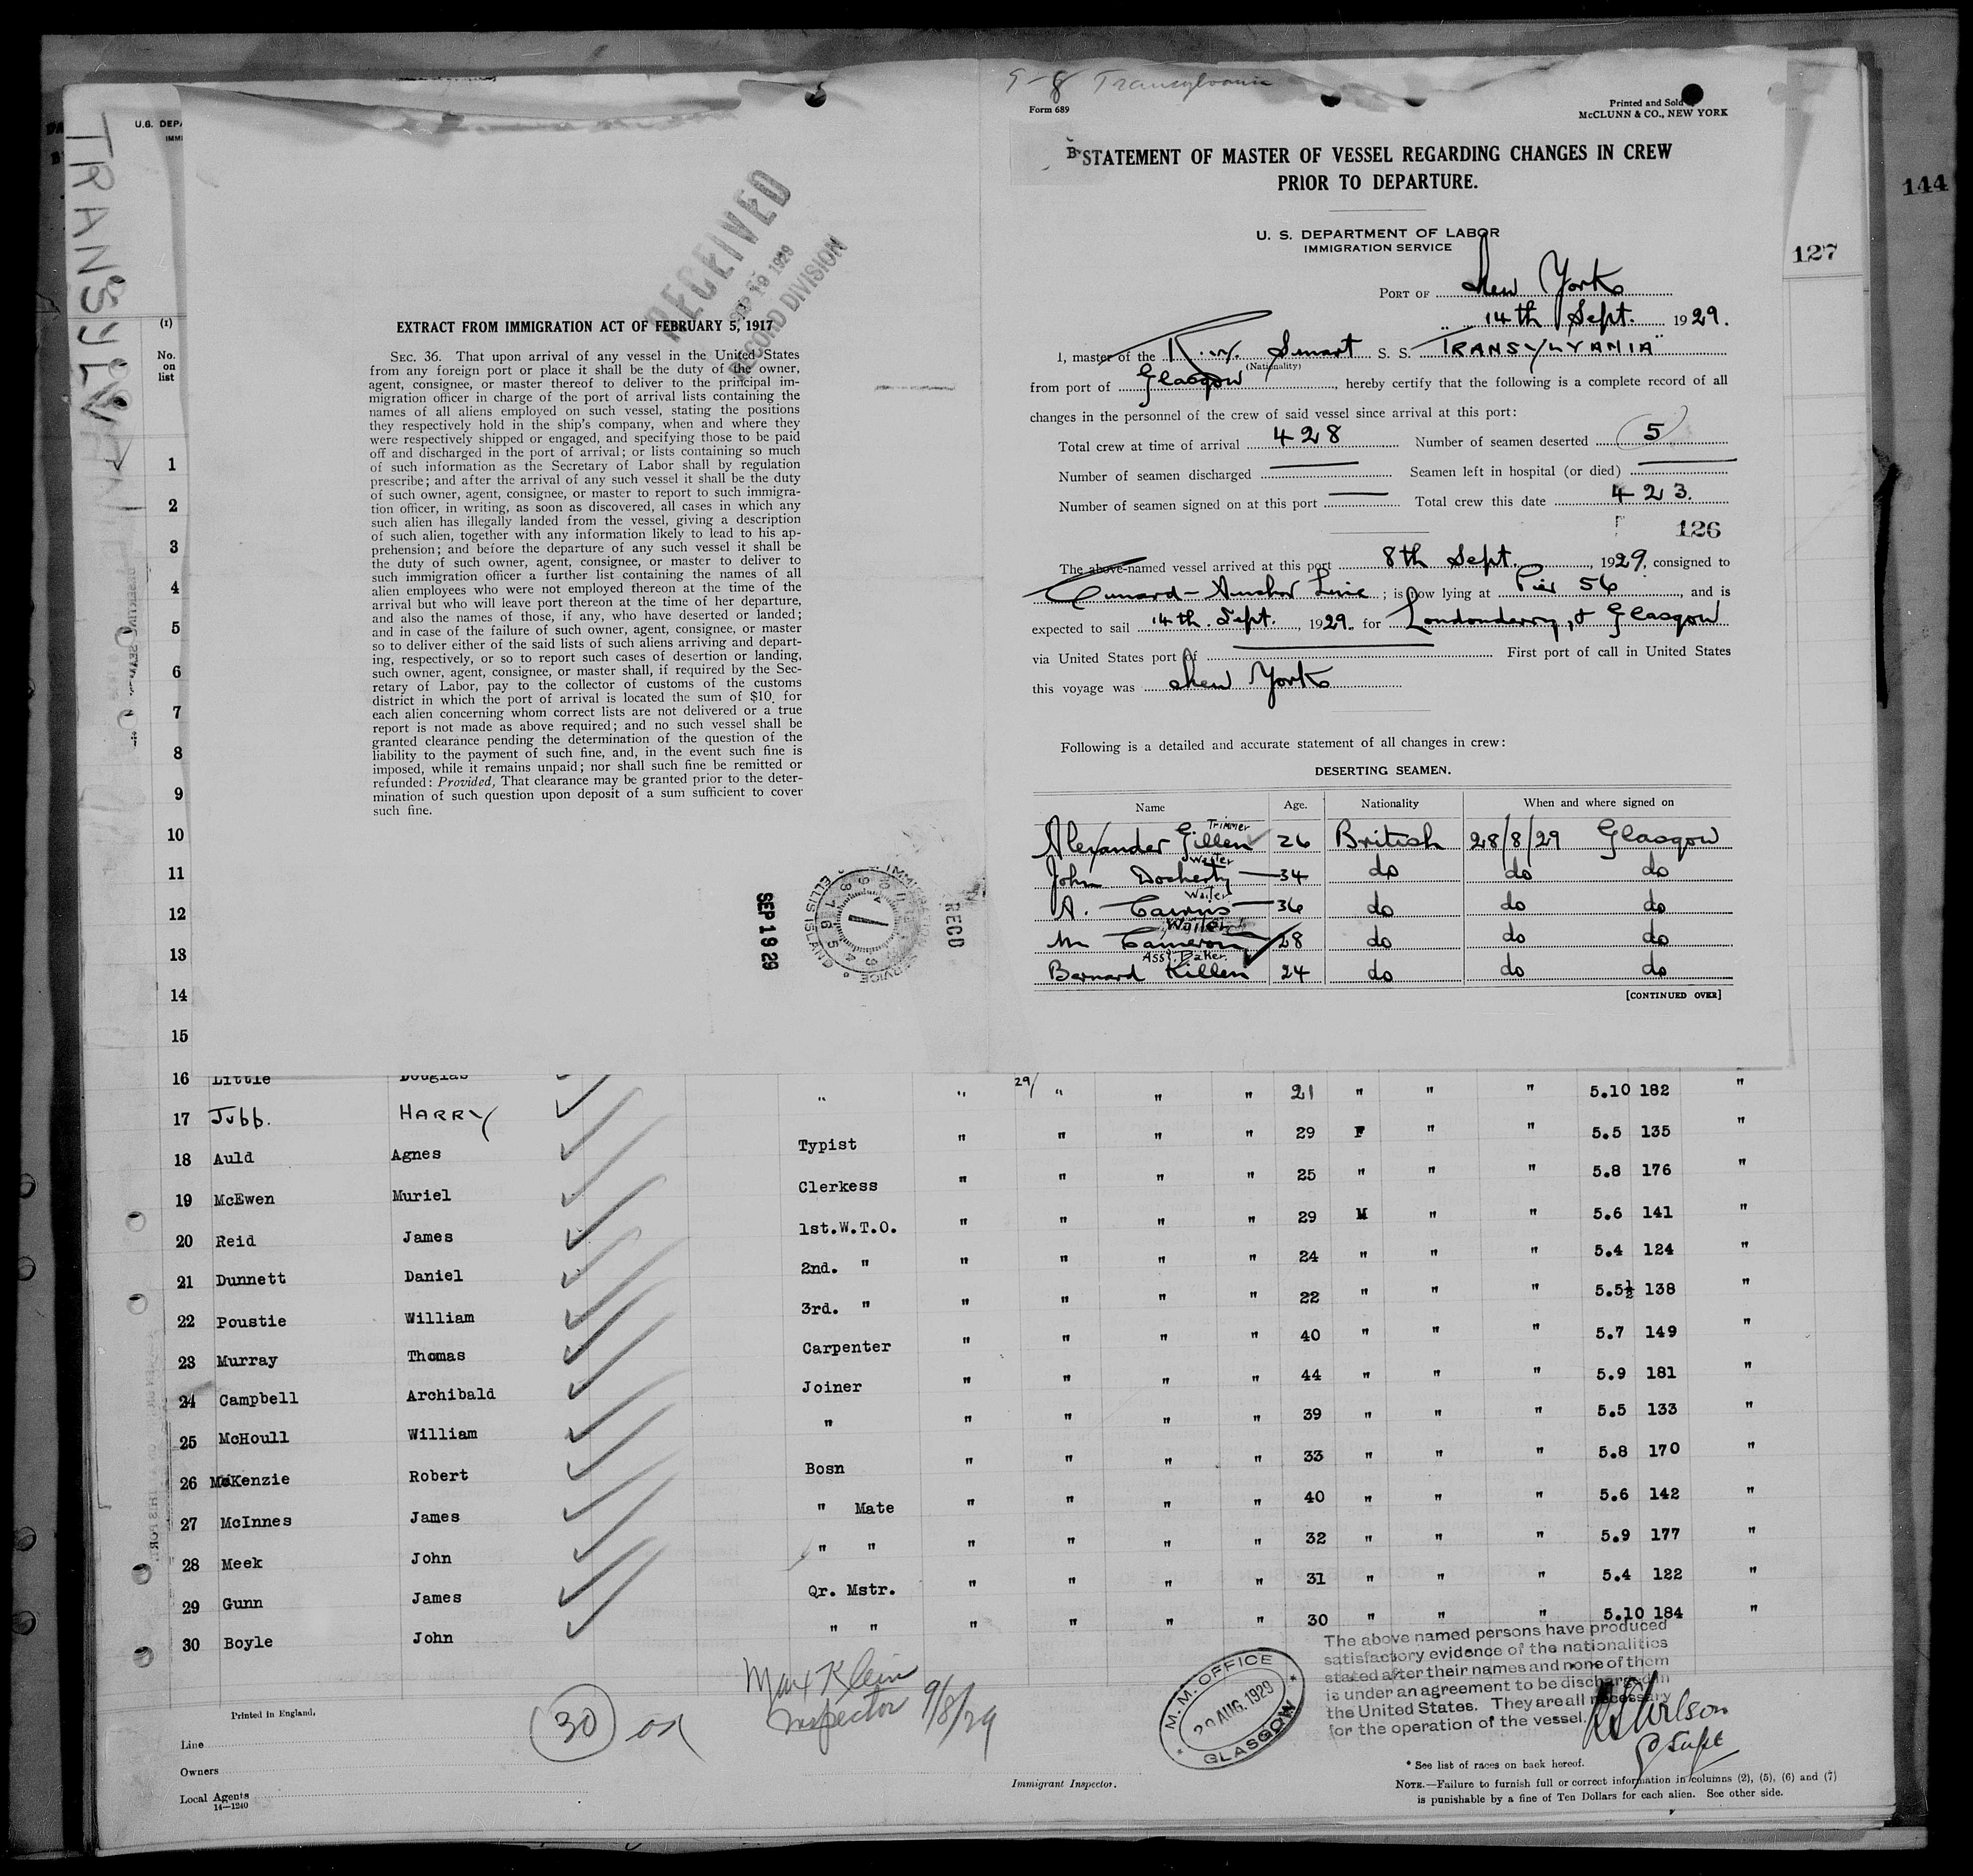 9-8 Transylvania
Form 689
Printed and Sold
McCLUNN & CO., NEW YORK
144
127
TRANSYLVANIA
U.S. DEPA
IMMI
STATEMENT OF MASTER OF VESSEL REGARDING CHANGES IN CREW
PRIOR TO DEPARTURE.
U. S. DEPARTMENT OF LABOR
IMMIGRATION SERVICE
PORT OF New York
14th Sept. 1929.
I, master of the R. W. Smart S. S. "TRANSYLVANIA"
(Nationality)
from port of Glasgow, hereby certify that the following is a complete record of all
changes in the personnel of the crew of said vessel since arrival at this port:
Total crew at time of arrival 428 Number of seamen deserted 5
Number of seamen discharged — Seamen left in hospital (or died) —
Number of seamen signed on at this port — Total crew this date 423.
126
The above-named vessel arrived at this port 8th Sept., 1929, consigned to
Cunard-Anchor Line; is now lying at Pier 56, and is
expected to sail 14th. Sept., 1929. for Londonderry, & Glasgow
via United States port of — First port of call in United States
this voyage was New York
Following is a detailed and accurate statement of all changes in crew:
DESERTING SEAMEN.
Name Age. Nationality When and where signed on
Trimmer
Alexander G. Gillen 26 British 28/8/29 Glasgow
Waiter
John Docherty 34 do do do
Waiter
A. Cairns 36 do do do
Waiter
M Cameron 28 do do do
Asst. Baker
Bernard Killen 24 do do do
[CONTINUED OVER]
RECEIVED
SEP 19 1929
RECORD DIVISION
EXTRACT FROM IMMIGRATION ACT OF FEBRUARY 5, 1917
SEC. 36. That upon arrival of any vessel in the United States
from any foreign port or place it shall be the duty of the owner,
agent, consignee, or master thereof to deliver to the principal im-
migration officer in charge of the port of arrival lists containing the
names of all aliens employed on such vessel, stating the positions
they respectively hold in the ship's company, when and where they
were respectively shipped or engaged, and specifying those to be paid
off and discharged in the port of arrival; or lists containing so much
of such information as the Secretary of Labor shall by regulation
prescribe; and after the arrival of any such vessel it shall be the duty
of such owner, agent, consignee, or master to report to such immigra-
tion officer, in writing, as soon as discovered, all cases in which any
such alien has illegally landed from the vessel, giving a description
of such alien, together with any information likely to lead to his ap-
prehension; and before the departure of any such vessel it shall be
the duty of such owner, agent, consignee, or master to deliver to
such immigration officer a further list containing the names of all
alien employees who were not employed thereon at the time of the
arrival but who will leave port thereon at the time of her departure,
and also the names of those, if any, who have deserted or landed;
and in case of the failure of such owner, agent, consignee, or master
so to deliver either of the said lists of such aliens arriving and depart-
ing, respectively, or so to report such cases of desertion or landing,
such owner, agent, consignee, or master shall, if required by the Sec-
retary of Labor, pay to the collector of customs of the customs
district in which the port of arrival is located the sum of $10 for
each alien concerning whom correct lists are not delivered or a true
report is not made as above required; and no such vessel shall be
granted clearance pending the determination of the question of the
liability to the payment of such fine, and, in the event such fine is
imposed, while it remains unpaid; nor shall such fine be remitted or
refunded: Provided, That clearance may be granted prior to the deter-
mination of such question upon deposit of a sum sufficient to cover
such fine.
SEP 19 29
IMMIGRATION SERVICE
ELLIS ISLAND
RECD
(1)
No.
on
list
1
2
3
4
5
6
7
8
9
10
11
12
13
14
15
16 Little Douglas
17 Jubb. HARRY " " 29/ " " " 21 " " " 5.10 182 "
18 Auld Agnes Typist " " " " 29 F " " 5.5 135 "
19 McEwen Muriel Clerkess " " " " 25 " " " 5.8 176 "
20 Reid James 1st.W.T.O. " " " " 29 M " " 5.6 141 "
21 Dunnett Daniel 2nd. " " " " " 24 " " " 5.4 124 "
22 Poustie William 3rd. " " " " " 22 " " " 5.5½ 138 "
23 Murray Thomas Carpenter " " " " 40 " " " 5.7 149 "
24 Campbell Archibald Joiner " " " " 44 " " " 5.9 181 "
25 McHoull William " " " " " 39 " " " 5.5 133 "
26 McKenzie Robert Bosn " " " " 33 " " " 5.8 170 "
27 McInnes James " Mate " " " " 40 " " " 5.6 142 "
28 Meek John " " " " " " 32 " " " 5.9 177 "
29 Gunn James Qr. Mstr. " " " " 31 " " " 5.4 122 "
30 Boyle John " " " " " " 30 " " " 5.10 184 "
The above named persons have produced
satisfactory evidence of the nationalities
stated after their names and none of them
is under an agreement to be discharged in
the United States. They are all necessary
for the operation of the vessel.
Wilson
Supt
M.M. OFFICE
29 AUG. 1929
GLASGOW
Max Klein
Inspector 9/8/29
30 ok
Printed in England.
Line
Owners
Local Agents
14—1240
Immigrant Inspector.
* See list of races on back hereof.
NOTE.—Failure to furnish full or correct information in columns (2), (5), (6) and (7)
is punishable by a fine of Ten Dollars for each alien. See other side.